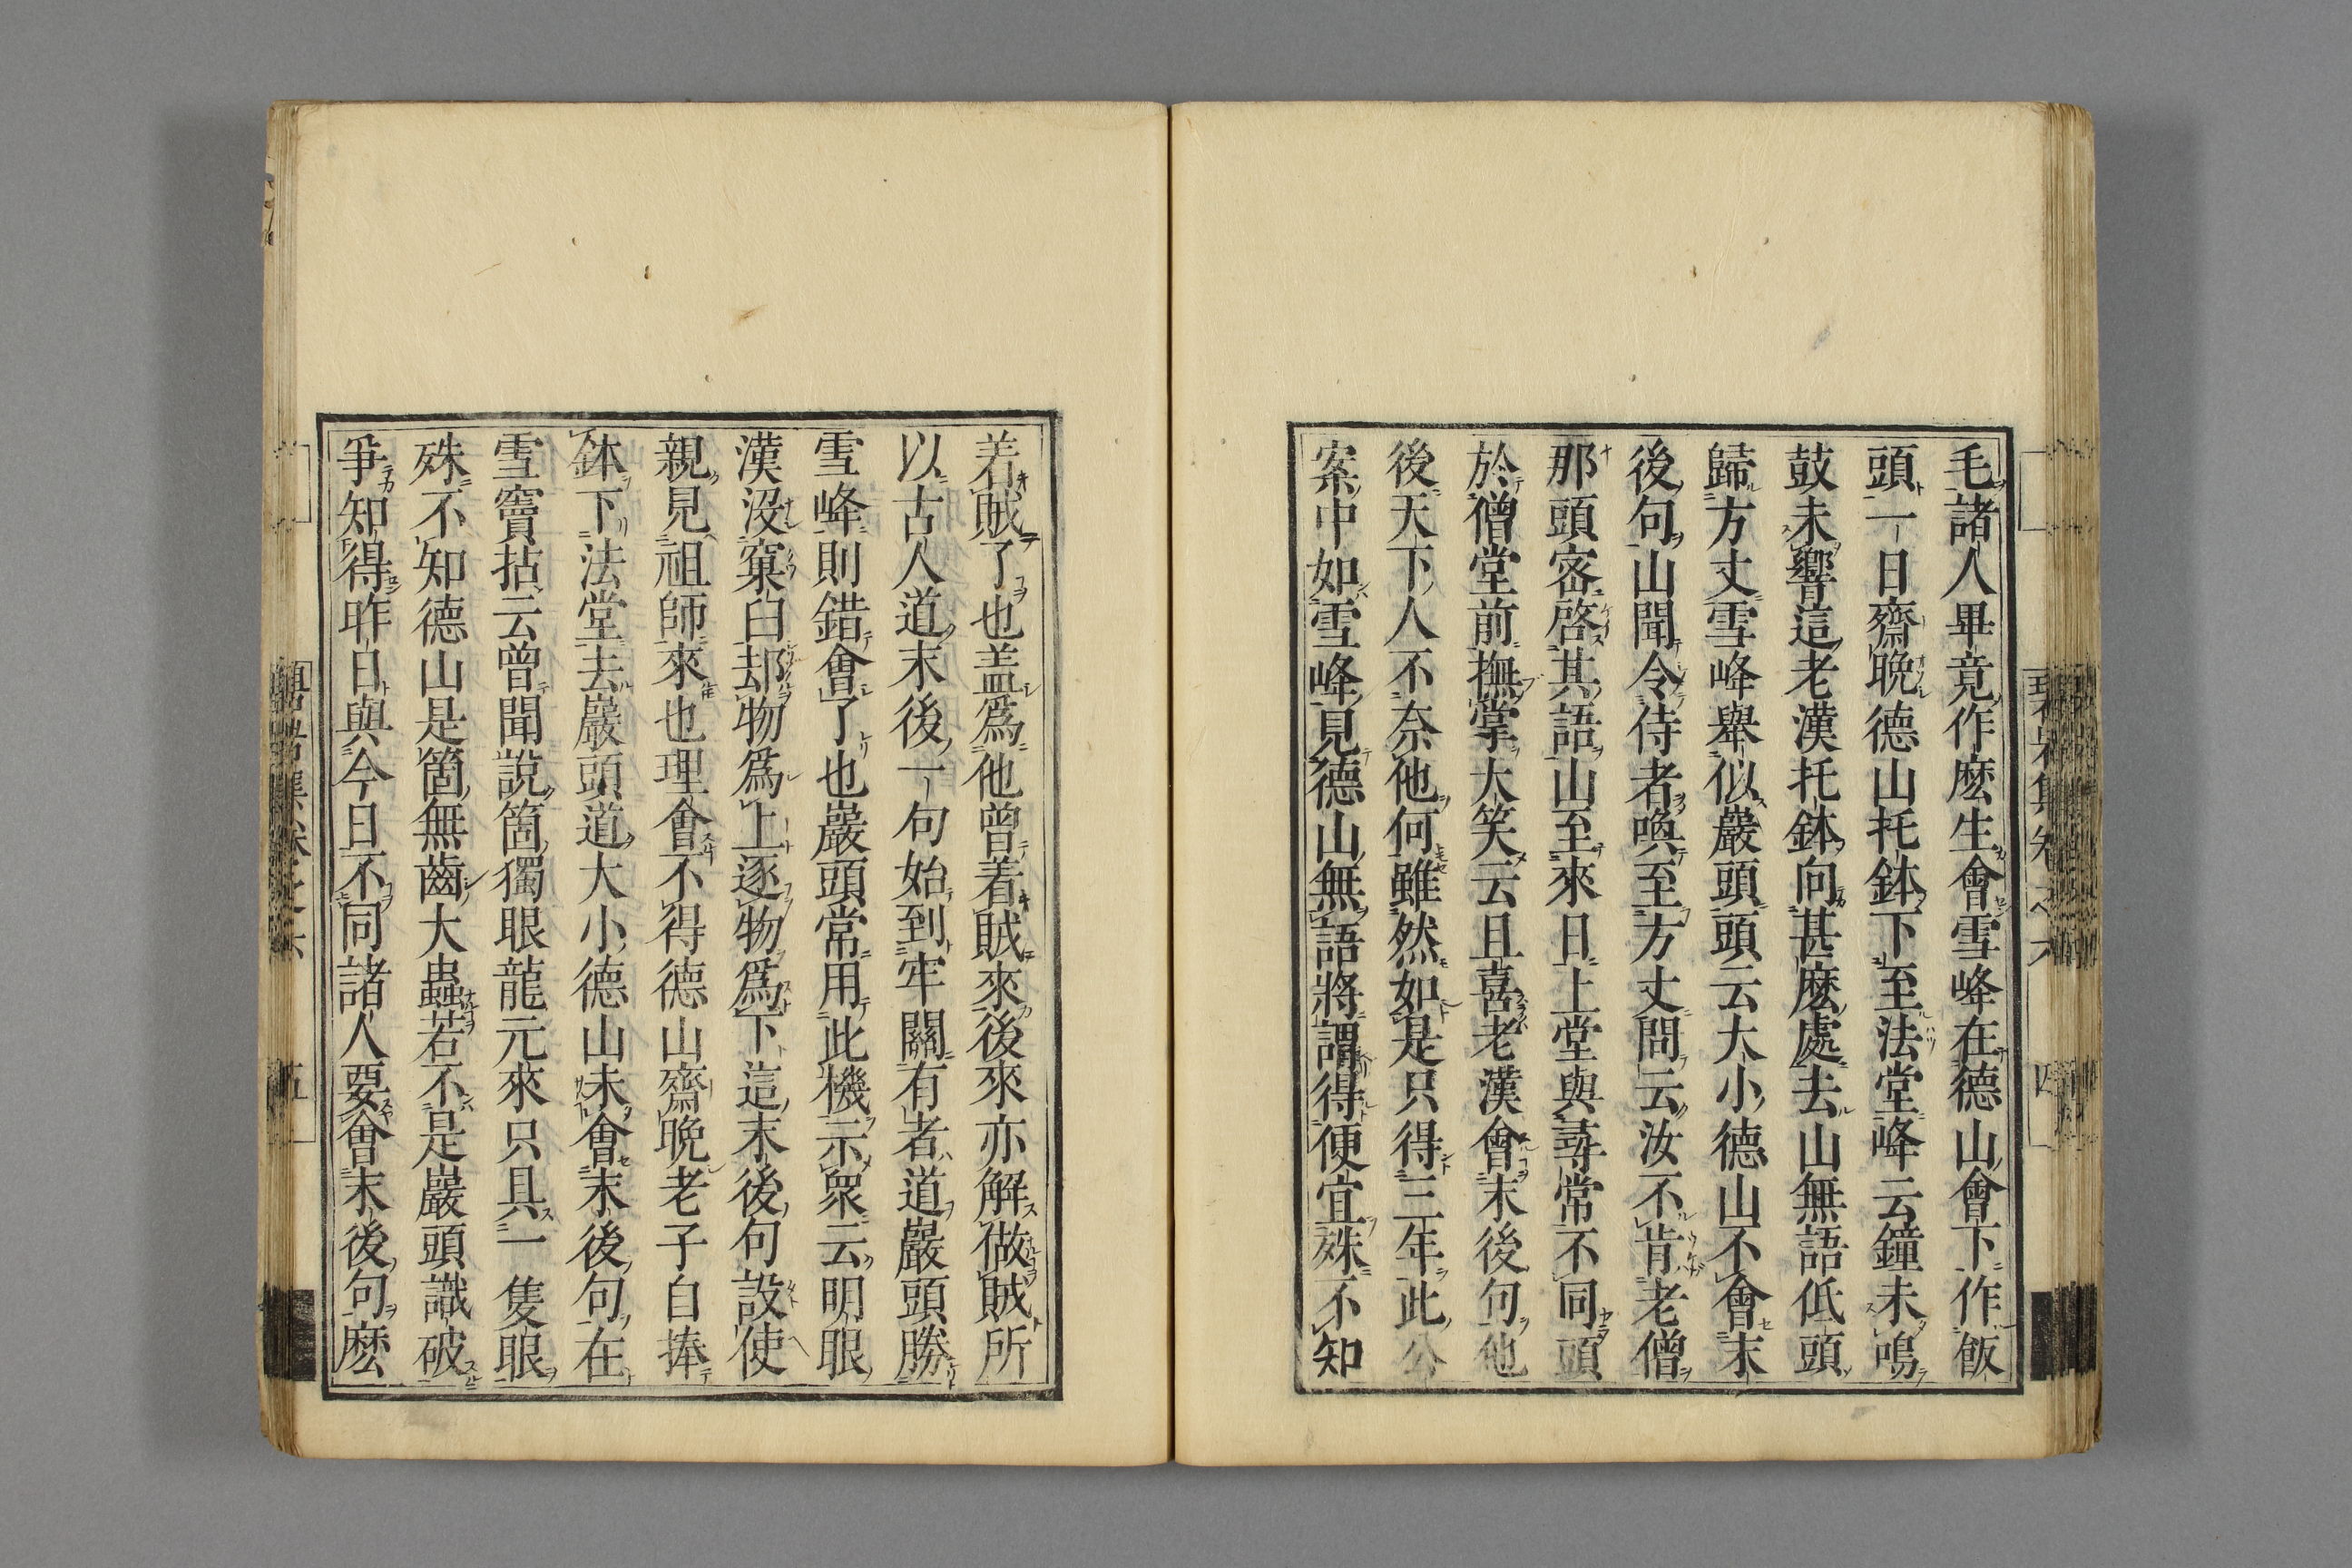 毛諸人畢竟作麽生會雪峰在德山會下作飯
頭一日齋晩德山托鉢下至法堂峰云鐘未鳴
鼓未響這老漢托鉢向甚麽處去山無語低頭
歸方丈雪峰舉似巖頭頭云大小德山不會末
後句山聞令侍者喚至方丈問云汝不肯老僧
那頭密啓其語山至來日上堂與尋常不同頭
於僧堂前撫掌大笑云且喜老漢會末後句他
後天下人不奈他何雖然如是只得三年此公
案中如雪峰見德山無語將謂得便宜殊不知
着賊了也盖爲他曾着賊來後來亦解做賊所
以古人道末後一句始到牢關有者道巖頭勝
雪峰則錯會了也巖頭常用此機示衆云明眼
漢没窠臼却物爲上逐物爲下這末後句設使
親見祖師來也理會不得德山齋晩老子自捧
鉢下法堂去巖頭道大小德山未會末後句在
雪竇拈云曾聞說箇獨眼龍元來只具一隻眼
殊不知德山是箇無齒大蟲若不是巖頭識破
爭知得昨日與今日不同諸人要會末後句麽